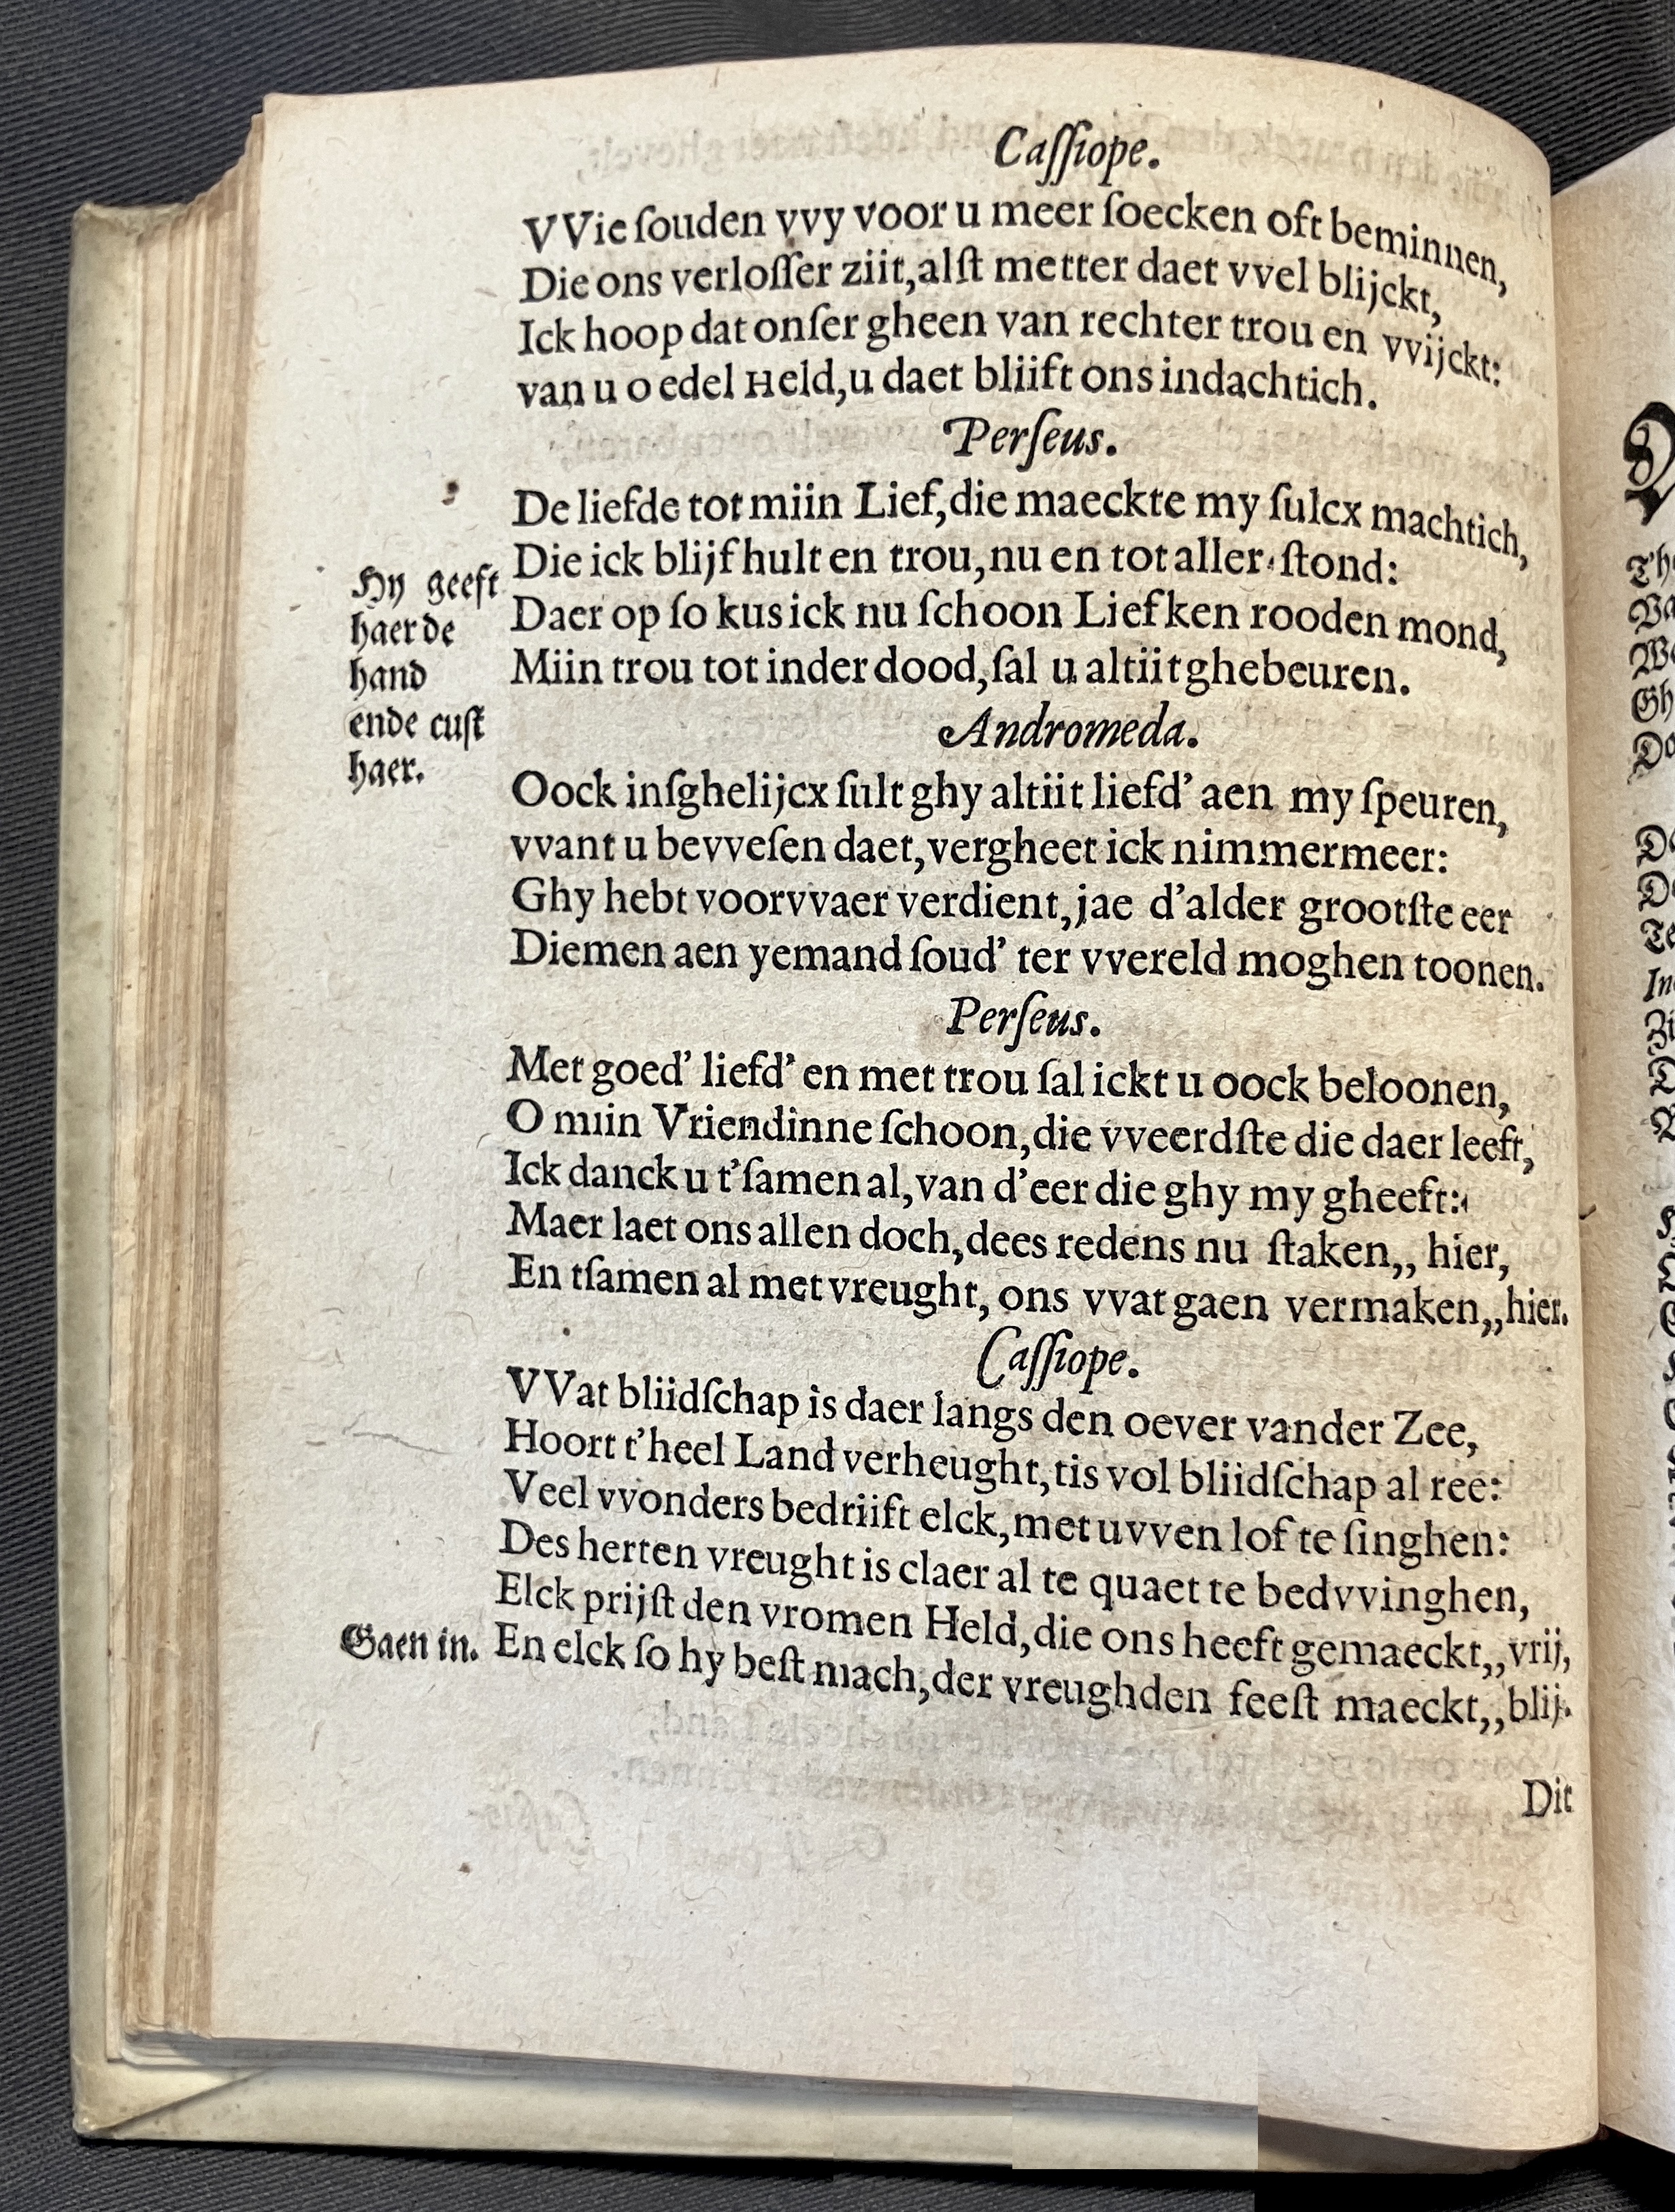 Caſſiope.
VVie ſouden vvy voor u meer ſoecken oft beminnen,
Die ons verloſſer ziit, alſt metter daet vvel blijckt,
Ick hoop dat onſer gheen van rechter trou en vvijckt:
van u o edel Held, u daet bliift ons indachtich.
Perſeus.
De liefde tot miin Lief, die maeckte my ſulcx machtich,
Die ick blijf hult en trou, nu en tot aller ſtond:
Daer op ſo kus ick nu ſchoon Liefken rooden mond,
Miin trou tot inder dood, ſal u altiit ghebeuren.
Hy geeft
haer de
hand
ende cuſt
haer.
Andromeda.
Oock inſghelijcx ſult ghy altiit liefd' aen my ſpeuren,
vvant u bevveſen daet, vergheet ick nimmermeer:
Ghy hebt voorvvaer verdient, jae d'alder grootſte eer
Diemen aen yemand ſoud' ter vvereld moghen toonen.
Perſeus.
Met goed' liefd' en met trou ſal ickt u oock beloonen,
O miin Vriendinne ſchoon, die vveerdſte die daer leeft,
Ick danck u t'ſamen al, van d'eer die ghy my gheeft:
Maer laet ons allen doch, dees redens nu ſtaken,, hier,
En tſamen al met vreught, ons vvat gaen vermaken,, hier.
Caſſiope.
VVat bliidſchap is daer langs den oever vander Zee,
Hoort t'heel Land verheught, tis vol bliidſchap al ree:
Veel vvonders bedriift elck, met uvven lof te ſinghen:
Des herten vreught is claer al te quaet te bedvvinghen,
Elck prijſt den vromen Held, die ons heeft gemaeckt,, vrij,
Gaen in. En elck ſo hy beſt mach, der vreughden feeſt maeckt,, blij.
Dit